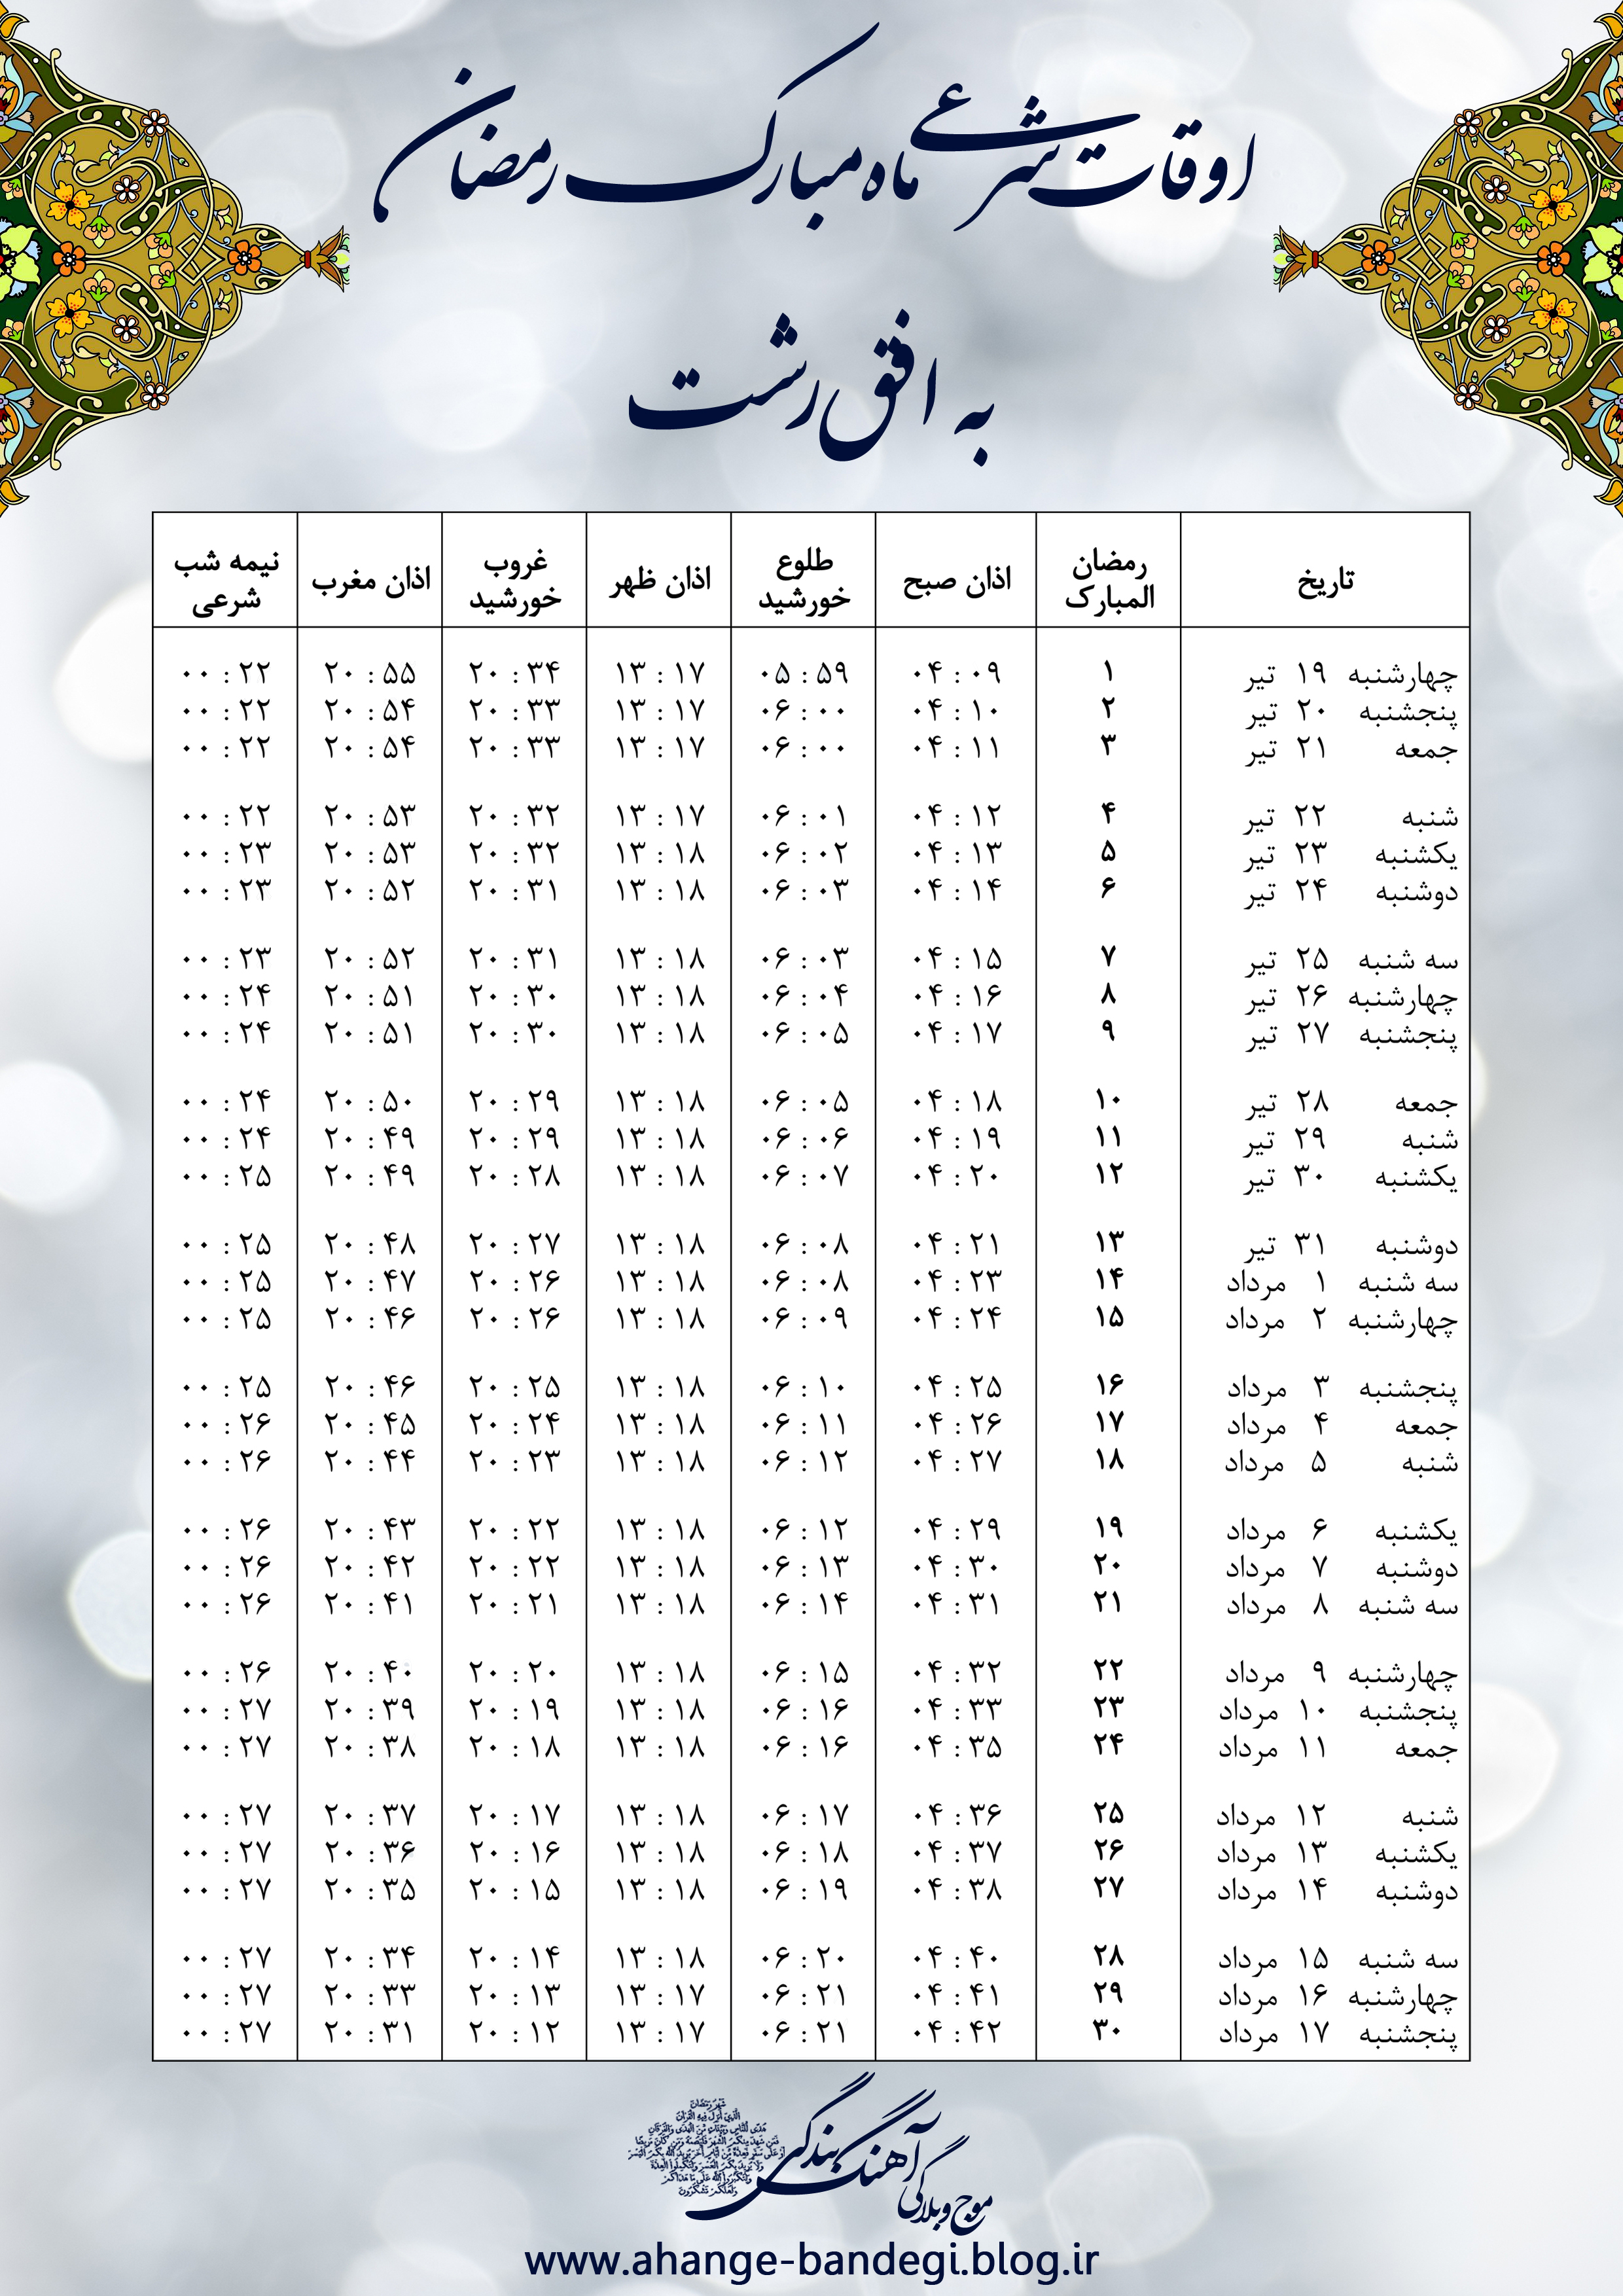 اوقات شرعی ماه مبارک رمضان
به افق رشت
تاریخ رمضان المبارک اذان صبح طلوع خورشید اذان ظهر غروب خورشید اذان مغرب نیمه شب شرعی
چهارشنبه ۱۹ تیر ۱ ۰۴:۰۹ ۰۵:۵۹ ۱۳:۱۷ ۲۰:۳۴ ۲۰:۵۵ ۰۰:۲۲
پنجشنبه ۲۰ تیر ۲ ۰۴:۱۰ ۰۶:۰۰ ۱۳:۱۷ ۲۰:۳۳ ۲۰:۵۴ ۰۰:۲۲
جمعه ۲۱ تیر ۳ ۰۴:۱۱ ۰۶:۰۰ ۱۳:۱۷ ۲۰:۳۳ ۲۰:۵۴ ۰۰:۲۲
شنبه ۲۲ تیر ۴ ۰۴:۱۲ ۰۶:۰۱ ۱۳:۱۷ ۲۰:۳۲ ۲۰:۵۳ ۰۰:۲۲
یکشنبه ۲۳ تیر ۵ ۰۴:۱۳ ۰۶:۰۲ ۱۳:۱۸ ۲۰:۳۲ ۲۰:۵۳ ۰۰:۲۳
دوشنبه ۲۴ تیر ۶ ۰۴:۱۴ ۰۶:۰۳ ۱۳:۱۸ ۲۰:۳۱ ۲۰:۵۲ ۰۰:۲۳
سه شنبه ۲۵ تیر ۷ ۰۴:۱۵ ۰۶:۰۳ ۱۳:۱۸ ۲۰:۳۱ ۲۰:۵۲ ۰۰:۲۳
چهارشنبه ۲۶ تیر ۸ ۰۴:۱۶ ۰۶:۰۴ ۱۳:۱۸ ۲۰:۳۰ ۲۰:۵۱ ۰۰:۲۴
پنجشنبه ۲۷ تیر ۹ ۰۴:۱۷ ۰۶:۰۵ ۱۳:۱۸ ۲۰:۳۰ ۲۰:۵۱ ۰۰:۲۴
جمعه ۲۸ تیر ۱۰ ۰۴:۱۸ ۰۶:۰۵ ۱۳:۱۸ ۲۰:۲۹ ۲۰:۵۰ ۰۰:۲۴
شنبه ۲۹ تیر ۱۱ ۰۴:۱۹ ۰۶:۰۶ ۱۳:۱۸ ۲۰:۲۹ ۲۰:۴۹ ۰۰:۲۴
یکشنبه ۳۰ تیر ۱۲ ۰۴:۲۰ ۰۶:۰۷ ۱۳:۱۸ ۲۰:۲۸ ۲۰:۴۹ ۰۰:۲۵
دوشنبه ۳۱ تیر ۱۳ ۰۴:۲۱ ۰۶:۰۸ ۱۳:۱۸ ۲۰:۲۷ ۲۰:۴۸ ۰۰:۲۵
سه شنبه ۱ مرداد ۱۴ ۰۴:۲۳ ۰۶:۰۸ ۱۳:۱۸ ۲۰:۲۶ ۲۰:۴۷ ۰۰:۲۵
چهارشنبه ۲ مرداد ۱۵ ۰۴:۲۴ ۰۶:۰۹ ۱۳:۱۸ ۲۰:۲۶ ۲۰:۴۶ ۰۰:۲۵
پنجشنبه ۳ مرداد ۱۶ ۰۴:۲۵ ۰۶:۱۰ ۱۳:۱۸ ۲۰:۲۵ ۲۰:۴۶ ۰۰:۲۵
جمعه ۴ مرداد ۱۷ ۰۴:۲۶ ۰۶:۱۱ ۱۳:۱۸ ۲۰:۲۴ ۲۰:۴۵ ۰۰:۲۶
شنبه ۵ مرداد ۱۸ ۰۴:۲۷ ۰۶:۱۲ ۱۳:۱۸ ۲۰:۲۳ ۲۰:۴۴ ۰۰:۲۶
یکشنبه ۶ مرداد ۱۹ ۰۴:۲۹ ۰۶:۱۲ ۱۳:۱۸ ۲۰:۲۲ ۲۰:۴۳ ۰۰:۲۶
دوشنبه ۷ مرداد ۲۰ ۰۴:۳۰ ۰۶:۱۳ ۱۳:۱۸ ۲۰:۲۲ ۲۰:۴۲ ۰۰:۲۶
سه شنبه ۸ مرداد ۲۱ ۰۴:۳۱ ۰۶:۱۴ ۱۳:۱۸ ۲۰:۲۱ ۲۰:۴۱ ۰۰:۲۶
چهارشنبه ۹ مرداد ۲۲ ۰۴:۳۲ ۰۶:۱۵ ۱۳:۱۸ ۲۰:۲۰ ۲۰:۴۰ ۰۰:۲۶
پنجشنبه ۱۰ مرداد ۲۳ ۰۴:۳۳ ۰۶:۱۶ ۱۳:۱۸ ۲۰:۱۹ ۲۰:۳۹ ۰۰:۲۷
جمعه ۱۱ مرداد ۲۴ ۰۴:۳۵ ۰۶:۱۶ ۱۳:۱۸ ۲۰:۱۸ ۲۰:۳۸ ۰۰:۲۷
شنبه ۱۲ مرداد ۲۵ ۰۴:۳۶ ۰۶:۱۷ ۱۳:۱۸ ۲۰:۱۷ ۲۰:۳۷ ۰۰:۲۷
یکشنبه ۱۳ مرداد ۲۶ ۰۴:۳۷ ۰۶:۱۸ ۱۳:۱۸ ۲۰:۱۶ ۲۰:۳۶ ۰۰:۲۷
دوشنبه ۱۴ مرداد ۲۷ ۰۴:۳۸ ۰۶:۱۹ ۱۳:۱۸ ۲۰:۱۵ ۲۰:۳۵ ۰۰:۲۷
سه شنبه ۱۵ مرداد ۲۸ ۰۴:۴۰ ۰۶:۲۰ ۱۳:۱۸ ۲۰:۱۴ ۲۰:۳۴ ۰۰:۲۷
چهارشنبه ۱۶ مرداد ۲۹ ۰۴:۴۱ ۰۶:۲۱ ۱۳:۱۷ ۲۰:۱۳ ۲۰:۳۳ ۰۰:۲۷
پنجشنبه ۱۷ مرداد ۳۰ ۰۴:۴۲ ۰۶:۲۱ ۱۳:۱۷ ۲۰:۱۲ ۲۰:۳۱ ۰۰:۲۷
موج وبلاگی آهنگ بندگی
www.ahange-bandegi.blog.ir